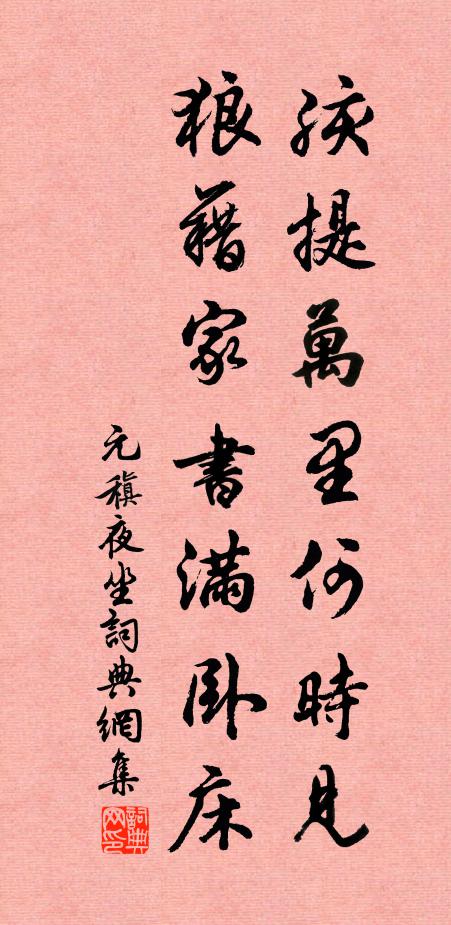 孩提萬里何時見
狼藉家書滿臥床
元稹夜坐詞典網集
詞典网印